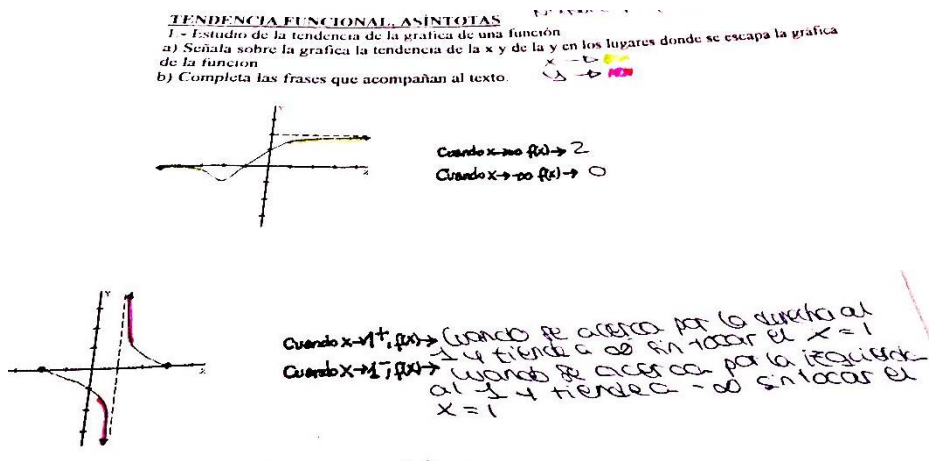 TENDENCIA FUNCIONAL. ASÍNTOTAS
1.- Estudio de la tendencia de la gráfica de una función
a) Señala sobre la gráfica la tendencia de la x y de la y en los lugares donde se escapa la gráfica
de la función
x →
b) Completa las frases que acompañan al texto.
y →
Y
X
Cuando x→∞ f(x)→ 2
Cuando x→-∞ f(x)→ 0
Y
X
Cuando x→1⁺, f(x)→ Cuando se acerca por la derecha al
1 y tiende a ∞ sin tocar el x = 1
Cuando x→1⁻, f(x)→ Cuando se acerca por la izquierda
al 1 y tiende a -∞ sin tocar el
x = 1